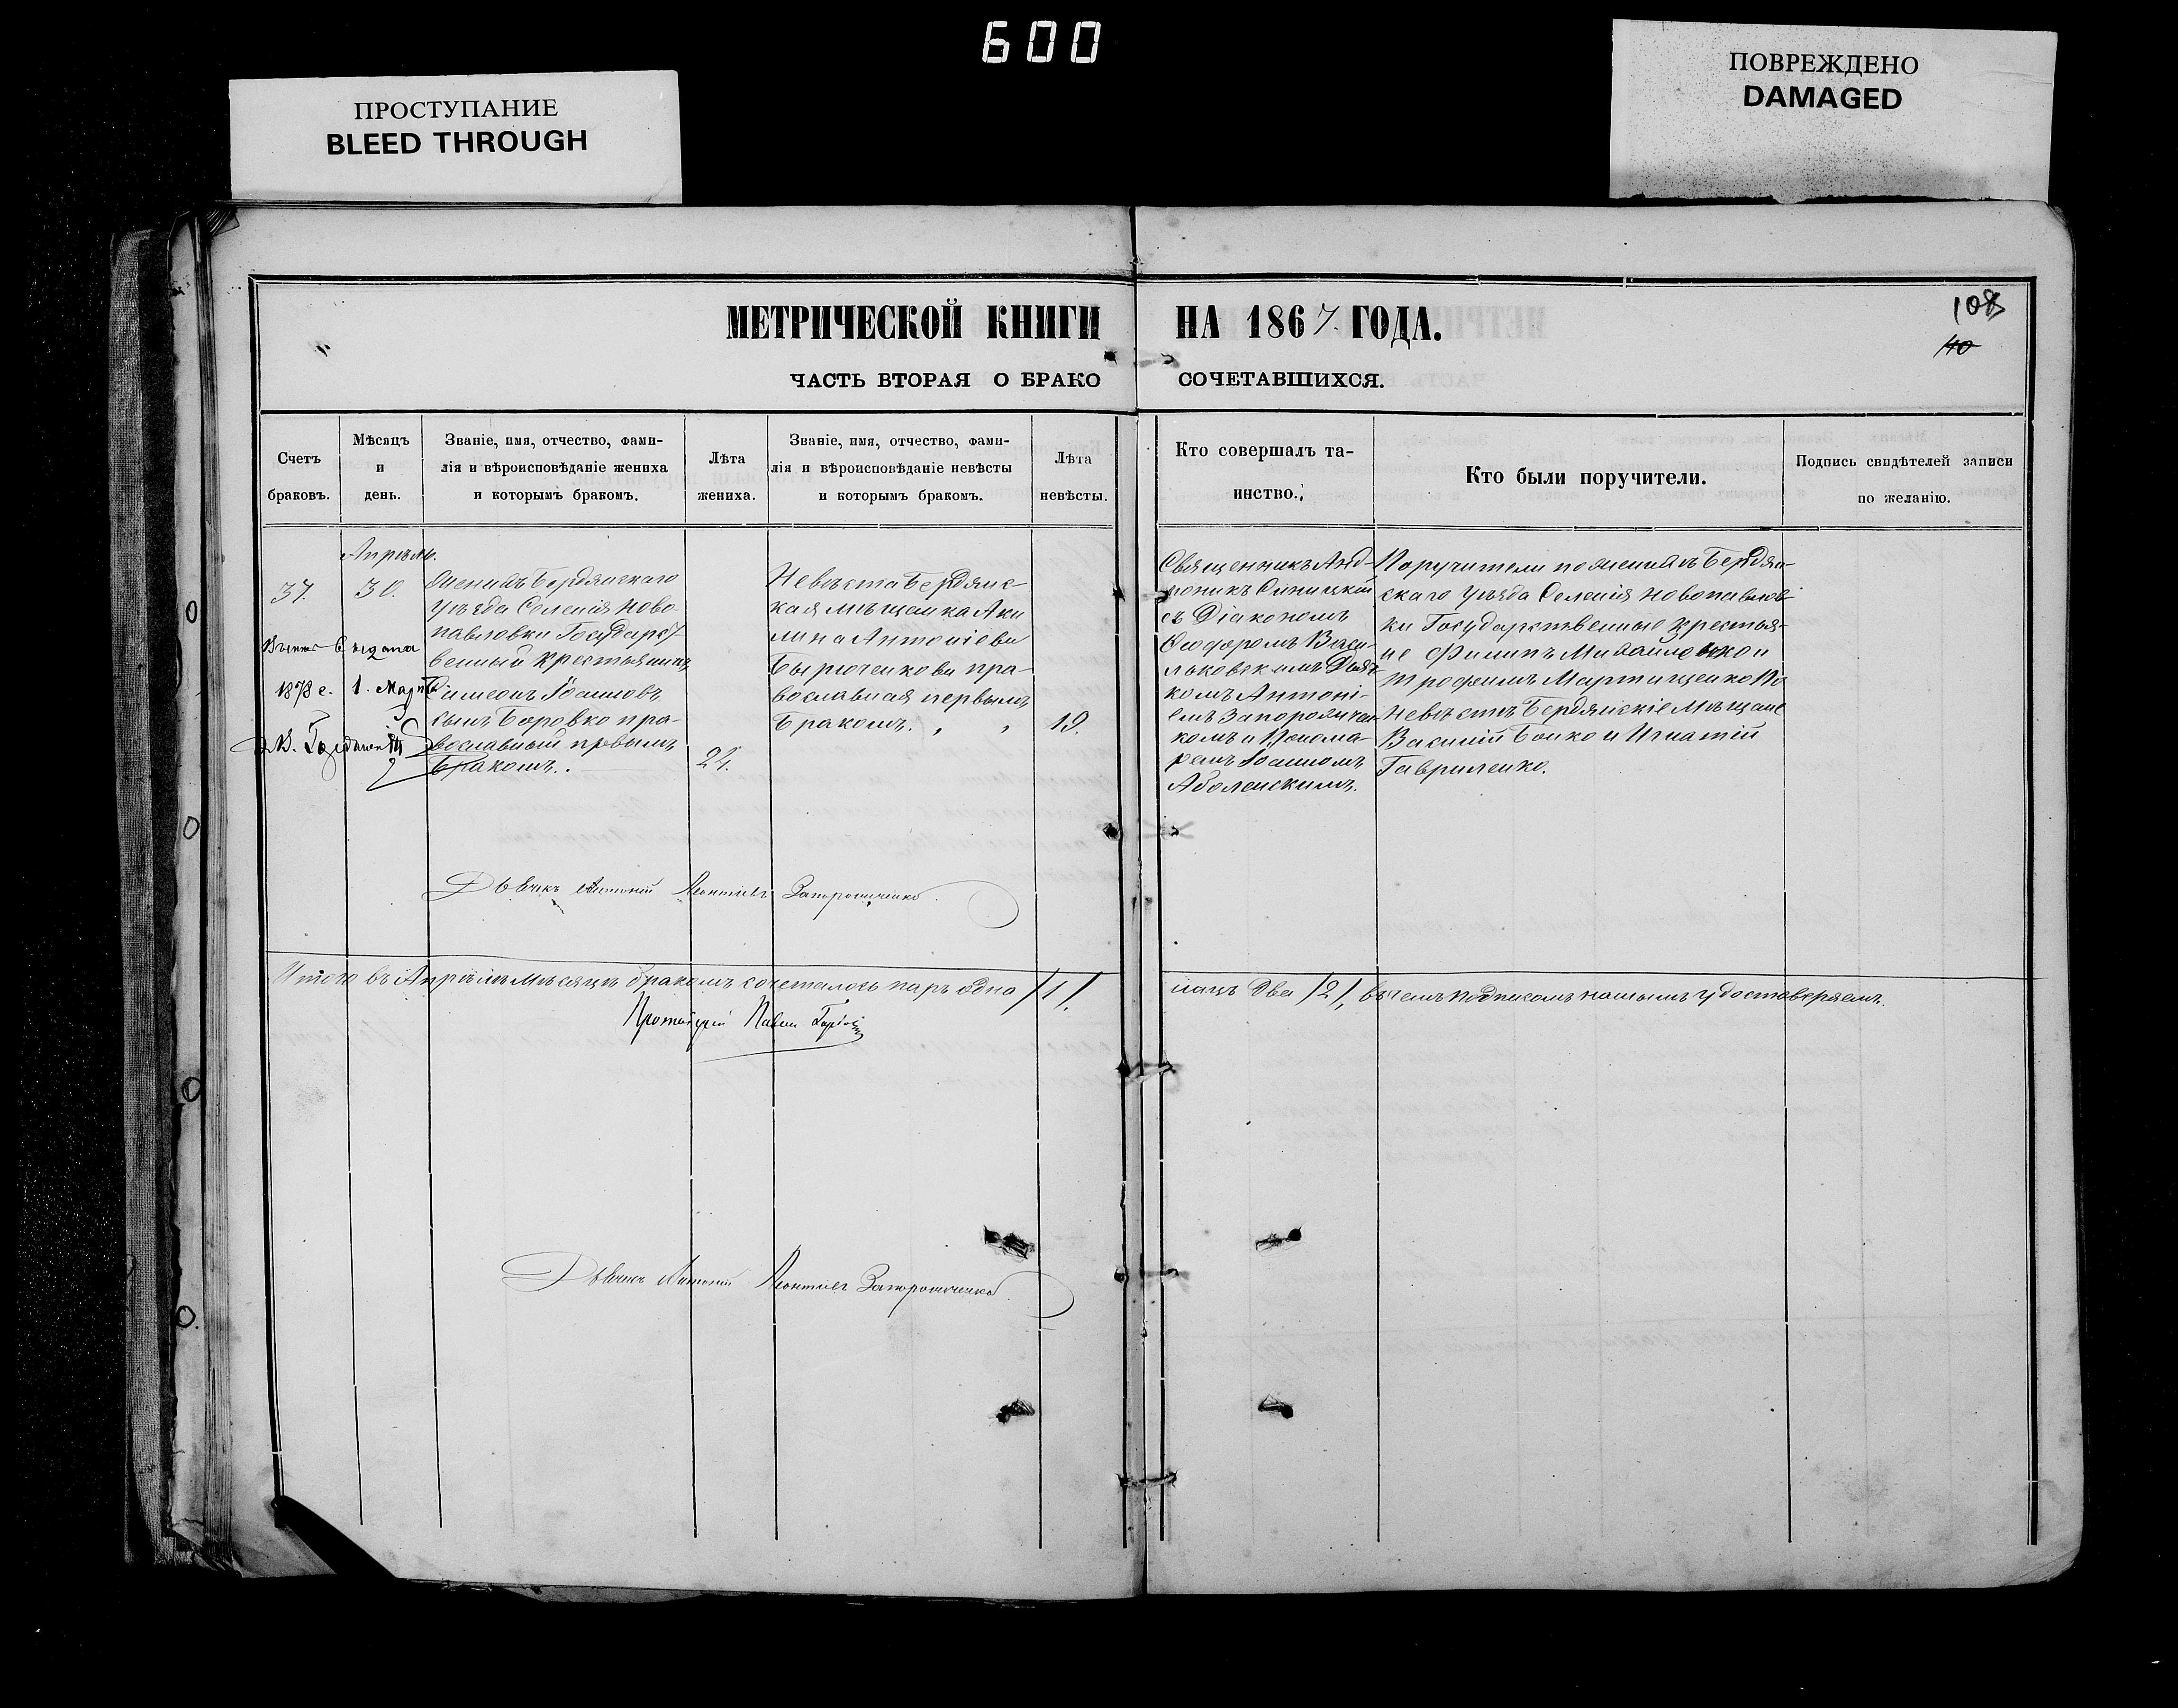 600
ПРОСТУПАНИЕ
BLEED THROUGH
ПОВРЕЖДЕНО
DAMAGED
108
40
МЕТРИЧЕСКОЙ КНИГИ НА 1867. ГОДА.
ЧАСТЬ ВТОРАЯ О БРАКОСОЧЕТАВШИХСЯ.
Счетъ
браковъ.
Мѣсяцъ
и
день.
Званіе, имя, отчество, фами-
лія и вѣроисповѣданіе жениха
и которымъ бракомъ.
Лѣта
жениха.
Званіе, имя, отчество, фами-
лія и вѣроисповѣданіе невѣсты
и которымъ бракомъ.
Лѣта
невѣсты.
Кто совершалъ та-
инство.
Кто были поручители.
Подпись свидѣтелей записи
по желанію.
37.
Апрѣль.
30.
выдана
1878 г. 1. Марта
Женихъ Бердянскаго
уѣзда Селенія Ново-
павловки Государст
венный крестьянинъ
Симеонъ Іоанновъ
сынъ Боровко пра-
вославный первымъ
бракомъ.
24.
Невѣста Бердянс-
кая мѣщанка Аки
лина Антоніева
Бырюченкова пра-
вославная первымъ
бракомъ.
19.
Священникъ Анд-
роникъ Синицкій
съ Діакономъ
Ѳеодоромъ Васи-
льковскимъ Дьяч
комъ Антоні-
емъ Запорожчен
комъ и Понома-
ремъ Іоанномъ
Аболенскимъ.
Поручители по женихѣ Бердян-
скаго уѣзда Селенія Новопавлов-
ки Государственные крестья-
не Филипъ Михайленко и
Трофимъ Мартыщенко По
Невѣстѣ Бердянскіе Мѣщане
Василій Бойко и Игнатій
Гавриленко.
Дьячекъ Антоній Леонтіевъ Запорожченко
Итого въ Апрѣлѣ мѣсяцѣ бракомъ сочеталось паръ одна /1/.
лицъ Два /2/, въ чемъ подписомъ нашимъ удостовѣряемъ.
Протоіерей Павелъ
Дьячекъ Антоній Леонтіевъ Запорожченко